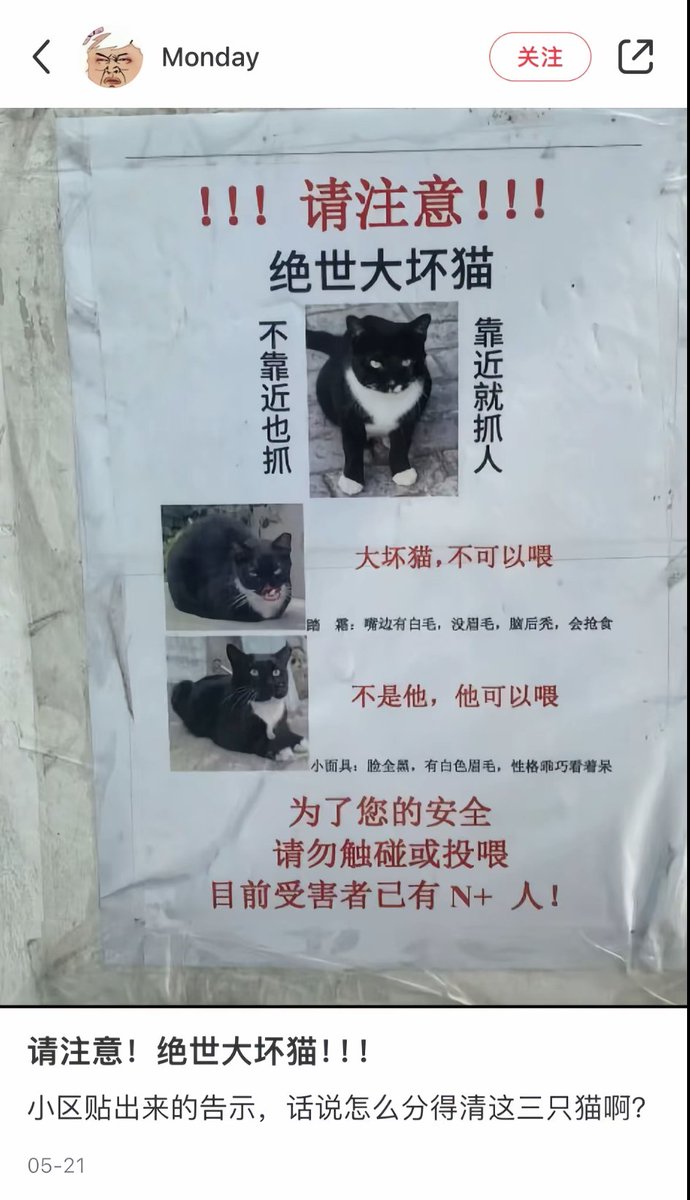 Monday
关注
!!! 请注意!!!
绝世大坏猫
不靠近也抓
靠近就抓人
大坏猫,不可以喂
踏 霜：嘴边有白毛，没眉毛，脑后秃，会抢食
不是他，他可以喂
小面具：脸全黑，有白色眉毛，性格乖巧看着呆
为了您的安全
请勿触碰或投喂
目前受害者已有 N+ 人!
请注意！绝世大坏猫!!!
小区贴出来的告示，话说怎么分得清这三只猫啊?
05-21